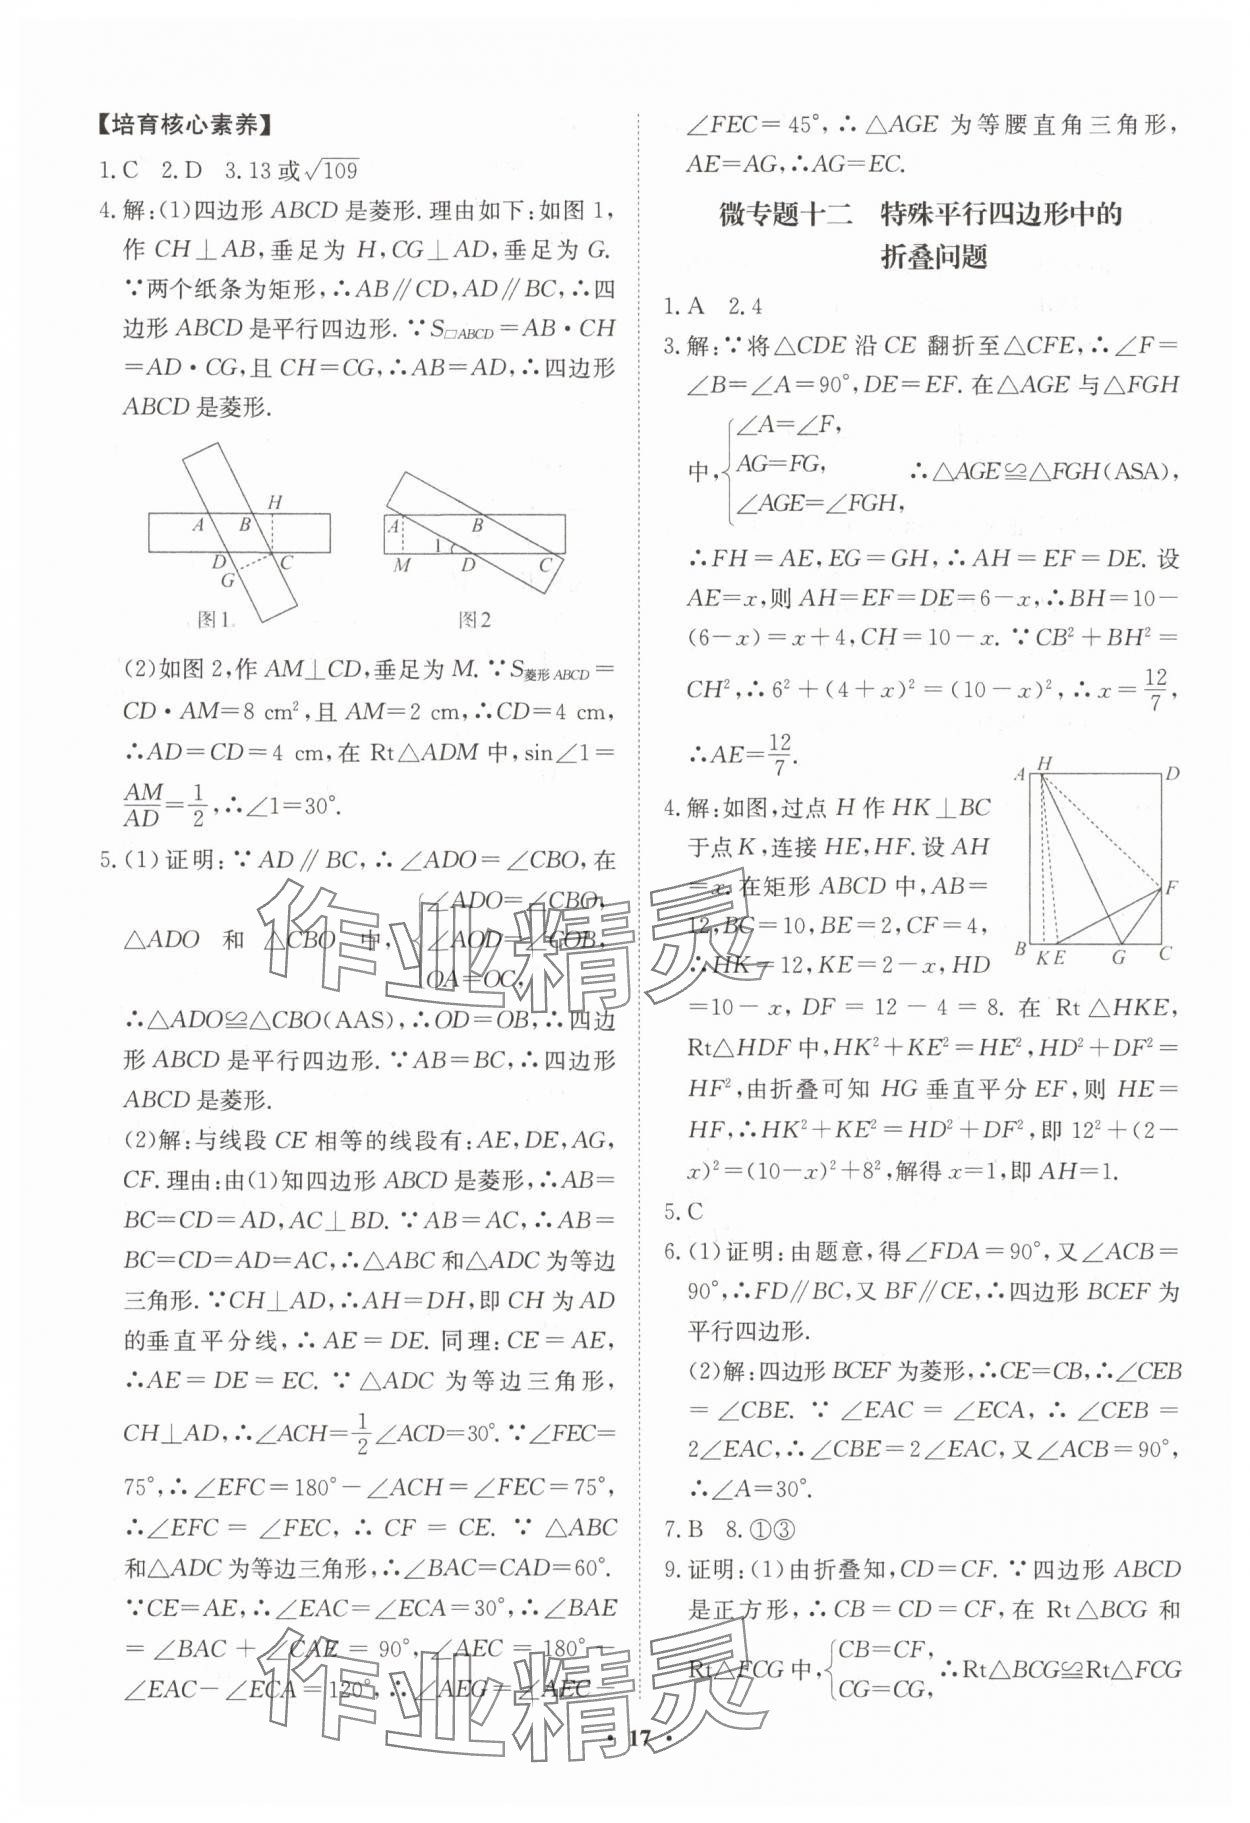 【培育核心素养】
1.C 2.D 3.13或√109
4.解:(1)四边形ABCD是菱形.理由如下:如图1,
作CH⊥AB,垂足为H,CG⊥AD,垂足为G.
∵两个纸条为矩形,∴AB∥CD,AD∥BC,∴四
边形ABCD是平行四边形.∵S□ABCD=AB·CH
=AD·CG,且CH=CG,∴AB=AD,∴四边形
ABCD是菱形.
A B H
D C
G
图1
A B
1
M D C
图2
(2)如图2,作AM⊥CD,垂足为M.∵S菱形ABCD=
CD·AM=8 cm²,且AM=2 cm,∴CD=4 cm,
∴AD=CD=4 cm,在Rt△ADM中,sin∠1=
AM/AD=1/2,∴∠1=30°.
5.(1)证明:∵AD∥BC,∴∠ADO=∠CBO,在
△ADO和△CBO中,{∠ADO=∠CBO,
∠AOD=∠COB,
OA=OC,
∴△ADO≌△CBO(AAS),∴OD=OB,∴四边
形ABCD是平行四边形.∵AB=BC,∴四边形
ABCD是菱形.
(2)解:与线段CE相等的线段有:AE,DE,AG,
CF.理由:由(1)知四边形ABCD是菱形,∴AB=
BC=CD=AD,AC⊥BD.∵AB=AC,∴AB=
BC=CD=AD=AC,∴△ABC和△ADC为等边
三角形.∵CH⊥AD,∴AH=DH,即CH为AD
的垂直平分线,∴AE=DE.同理:CE=AE,
∴AE=DE=EC.∵△ADC为等边三角形,
CH⊥AD,∴∠ACH=1/2∠ACD=30°.∵∠FEC=
75°,∴∠EFC=180°-∠ACH-∠FEC=75°,
∴∠EFC=∠FEC,∴CF=CE.∵△ABC
和△ADC为等边三角形,∴∠BAC=CAD=60°.
∵CE=AE,∴∠EAC=∠ECA=30°,∴∠BAE
=∠BAC+∠CAE=90°,∠AEC=180°-
∠EAC-∠ECA=120°,∴∠AEG=∠AEC-
∠FEC=45°,∴△AGE为等腰直角三角形,
AE=AG,∴AG=EC.
微专题十二 特殊平行四边形中的
折叠问题
1.A 2.4
3.解:∵将△CDE沿CE翻折至△CFE,∴∠F=
∠B=∠A=90°,DE=EF.在△AGE与△FGH
中,{∠A=∠F,
AG=FG,
∠AGE=∠FGH,
∴△AGE≌△FGH(ASA),
∴FH=AE,EG=GH,∴AH=EF=DE.设
AE=x,则AH=EF=DE=6-x,∴BH=10-
(6-x)=x+4,CH=10-x.∵CB²+BH²=
CH²,∴6²+(4+x)²=(10-x)²,∴x=12/7,
∴AE=12/7.
A H D
F
B K E G C
4.解:如图,过点H作HK⊥BC
于点K,连接HE,HF.设AH
=x.在矩形ABCD中,AB=
12,BC=10,BE=2,CF=4,
∴HK=12,KE=2-x,HD
=10-x,DF=12-4=8.在Rt△HKE,
Rt△HDF中,HK²+KE²=HE²,HD²+DF²=
HF²,由折叠可知HG垂直平分EF,则HE=
HF,∴HK²+KE²=HD²+DF²,即12²+(2-
x)²=(10-x)²+8²,解得x=1,即AH=1.
5.C
6.(1)证明:由题意,得∠FDA=90°,又∠ACB=
90°,∴FD∥BC,又BF∥CE,∴四边形BCEF为
平行四边形.
(2)解:四边形BCEF为菱形,∴CE=CB,∴∠CEB
=∠CBE.∵∠EAC=∠ECA,∴∠CEB=
2∠EAC,∴∠CBE=2∠EAC,又∠ACB=90°,
∴∠A=30°.
7.B 8.①③
9.证明:(1)由折叠知,CD=CF.∵四边形ABCD
是正方形,∴CB=CD=CF,在Rt△BCG和
Rt△FCG中,{CB=CF,
CG=CG,
∴Rt△BCG≌Rt△FCG
·17·
作业精灵
作业精灵